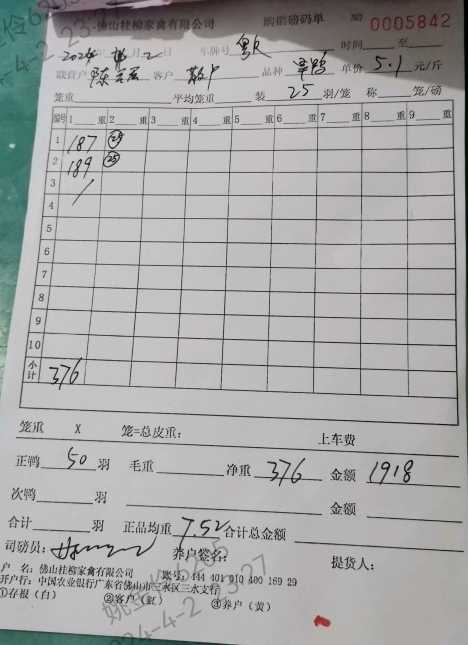 佛山桂柳家禽有限公司 购销磅码单 № 0005842
2024年 4月 2日 车牌号 粤R 时间 至
客户 散户 品种 单价 5.1 元/斤
笼重 平均笼重 装 25 羽/笼 称 笼/磅
编号 1 重 2 重 3 重 4 重 5 重 6 重 7 重 8 重 9 重
1 187 25
2 189 25
3 /
4
5
6
7
8
9
10
小计 376
笼重 X 笼=总皮重： 上车费
正鸭 50 羽 毛重 净重 376 金额 1918
次鸭 羽 金额
合计 羽 正品均重 7.52 合计总金额
司磅员： 养户签名： 提货人：
户 名：佛山桂柳家禽有限公司 账号：444 401 010 400 169 29
开户行：中国农业银行广东省佛山市三水区三水支行
①存根（白） ②客户（红） ③养户（黄）